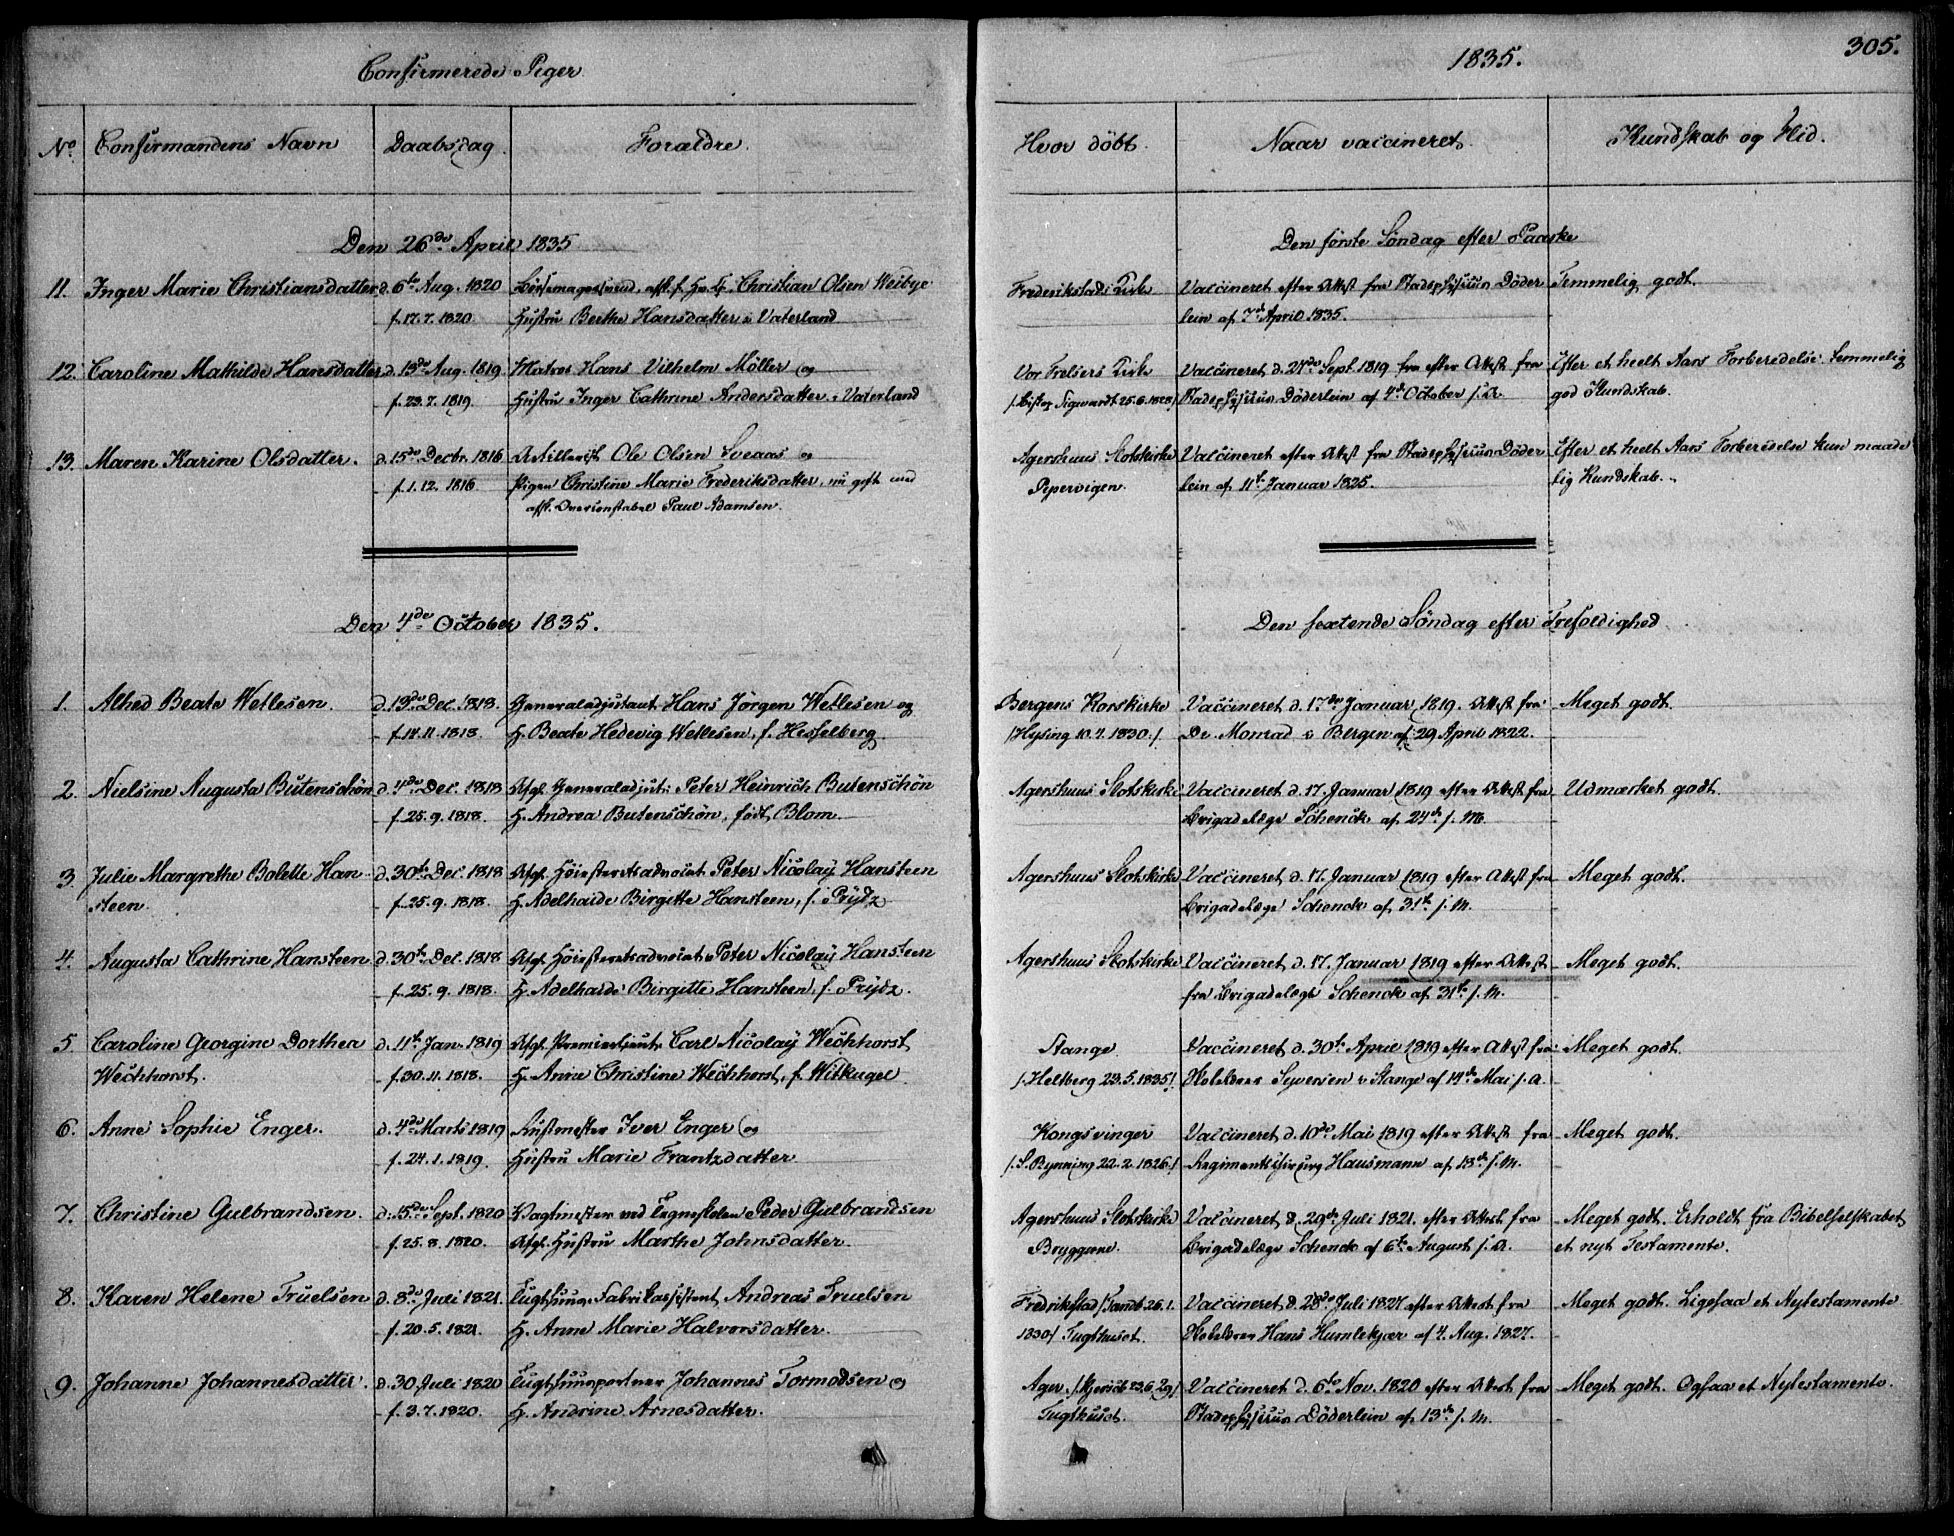 Confirmerede Piger
1835.
305.
No Confirmandens Navn Daabsdag Forældre. Hvor döbt. Naar vaccineret. Kundskab og Flid.
Den 26de April 1835
Den förste Söndag efter Paaske
11. Inger Marie Christiansdatter d. 6te Aug. 1820 Christian Olsen Weibye
- f. 17.7.1820 Hustru Berthe Hansdatter i Vaterland
Frederikstads Kirke Vaccineret efter Attest fra Stadsphysicus Döder Temmelig godt.
lein af 7de April 1835.
12. Caroline Mathilde Hansdatter d. 13de Aug. 1819 Matros Hans Vilhelm Möller og
- f. 23.7.1819 Hustru Inger Cathrine Andersdatter i Vaterland
Vor Frelsers Kirke Vaccineret d. 21de Sept. 1819 efter Attest fra Efter et heelt Aars Forberedelse temmelig
Sigwardt 25.6.1828 Stadsphysicus Döderlein af 4de October s. A. god Kundskab.
13. Maren Karine Olsdatter. d. 15de Decbr. 1816 Artillerist Ole Olsen Sveaas og
- f. 1.12.1816 Pigen Christine Marie Frederiksdatter, nu gift med
afsk. Overconstabel Paul Adamsen.
Agershuus Slotskirke Vaccineret efter Attest fra Stadsphysicus Döder Efter et heelt Aars Forberedelse kun maade
Pepervigen. lein af 11te Januar 1825. lig Kundskab.
Den 4de October 1835.
Den sextende Söndag efter Trefoldighed
1. Alhed Beate Wetlesen. d. 13de Dec. 1818. Generaladjutant Hans Jörgen Wetlesen og
- f. 14.11.1818. H. Beate Hedevig Wetlesen, f. Hesselberg.
Bergens Korskirke Vaccineret d. 17de Januar 1819. Attest fra Meget godt.
/:Hysing 10.7.1830:/. Dr. Monrad i Bergen af 29 April 1822.
2. Nielsine Augusta Butenschön d. 4de Dec. 1818 Afg. Generaladjut: Peter Heinrich Butenschön
- f. 25.9.1818. H. Andrea Butenschön, födt Blom.
Agershuus Slotskirke Vaccineret d. 17. Januar 1819 efter Attest fra Udmærket godt.
Brigadelæge Schenck af 24de s. M.
3. Julie Margrethe Bolette Han d. 30te Dec. 1818 Afg. Höiesteretsadvocat Peter Nicolaÿ Hansteen
steen. - f. 25.9.1818. H. Adelhaide Birgitte Hansteen, f. Prÿdz
Agershuus Slotskirke Vaccineret d. 17. Januar 1819 efter Attest fra Meget godt.
Brigadelæge Schenck af 31te s. M.
4. Augusta Cathrine Hansteen d. 30te Dec. 1818 Afg. Höiesteretsadvocat Peter Nicolaÿ Hansteen
- f. 25.9.1818. H. Adelhaide Birgitte Hansteen, f. Prÿdz.
Agershuus Slotskirke Vaccineret d. 17. Januar 1819 efter Attest Meget godt.
fra Brigadelæge Schenck af 31te s. M.
5. Caroline Georgine Dorthea d. 11te Jan. 1819 Afg. Premierlieut. Carl Nicolaÿ Wechhorst
Wechhorst. - f. 30.11.1818. H. Anne Christine Wechhorst, f. Witkugel
Stange Vaccineret d. 30te April 1819 efter Attest fra Meget godt.
/:Heltberg 23.5.1835:/. Syversen i Stange af 14de Mai s. A.
6. Anne Sophie Enger. d. 4de Marts 1819 Rustmester Iver Enger og
- f. 24.1.1819. Hustru Marie Frantzdatter
Kongsvinger Vaccineret d. 10de Mai 1819 efter Attest fra Meget godt.
/:S. Bynning 22.2.1826:/ Regimentschirurg Hausmann af 13de s. M.
7. Christine Gulbrandsen. d. 15de Sept. 1820 Vagtmester ved Tegneskolen Peder Gulbrandsen
- f. 25.8.1820. Afg. Hustru Marthe Johnsdatter.
Agershuus Slotskirke Vaccineret d. 29de Juli 1821. efter Attest fra Meget godt. Erholdt fra Bibelselskabet
Bryggerne. Brigadelæge Schenck af 6te August s. A. et nyt Testamente.
8. Karen Helene Truelsen d. 8de Juli 1821. Tugthuus-Fabrikassistent Andreas Truelsen
- f. 20.5.1821. H. Anne Marie Halvorsdatter.
Fredrikstad 26.1. Vaccineret d. 28de Juli 1827 efter Attest fra Meget godt. Ligesaa et Nytestamente
1830/ Tugthuset. Hans Humlekjær af 4. Aug. 1827.
9. Johanne Johannesdatter. d. 30 Juli 1820 Tugthuusportner Johannes Tormodsen og
- f. 3.7.1820. H. Andrine Arnesdatter.
Ager. Vaccineret d. 6te Nov. 1820 efter Attest fra Meget godt. Ogsaa et Nytestamente.
Tugthuset. Stadsphysicus Döderlein af 13de s. M.